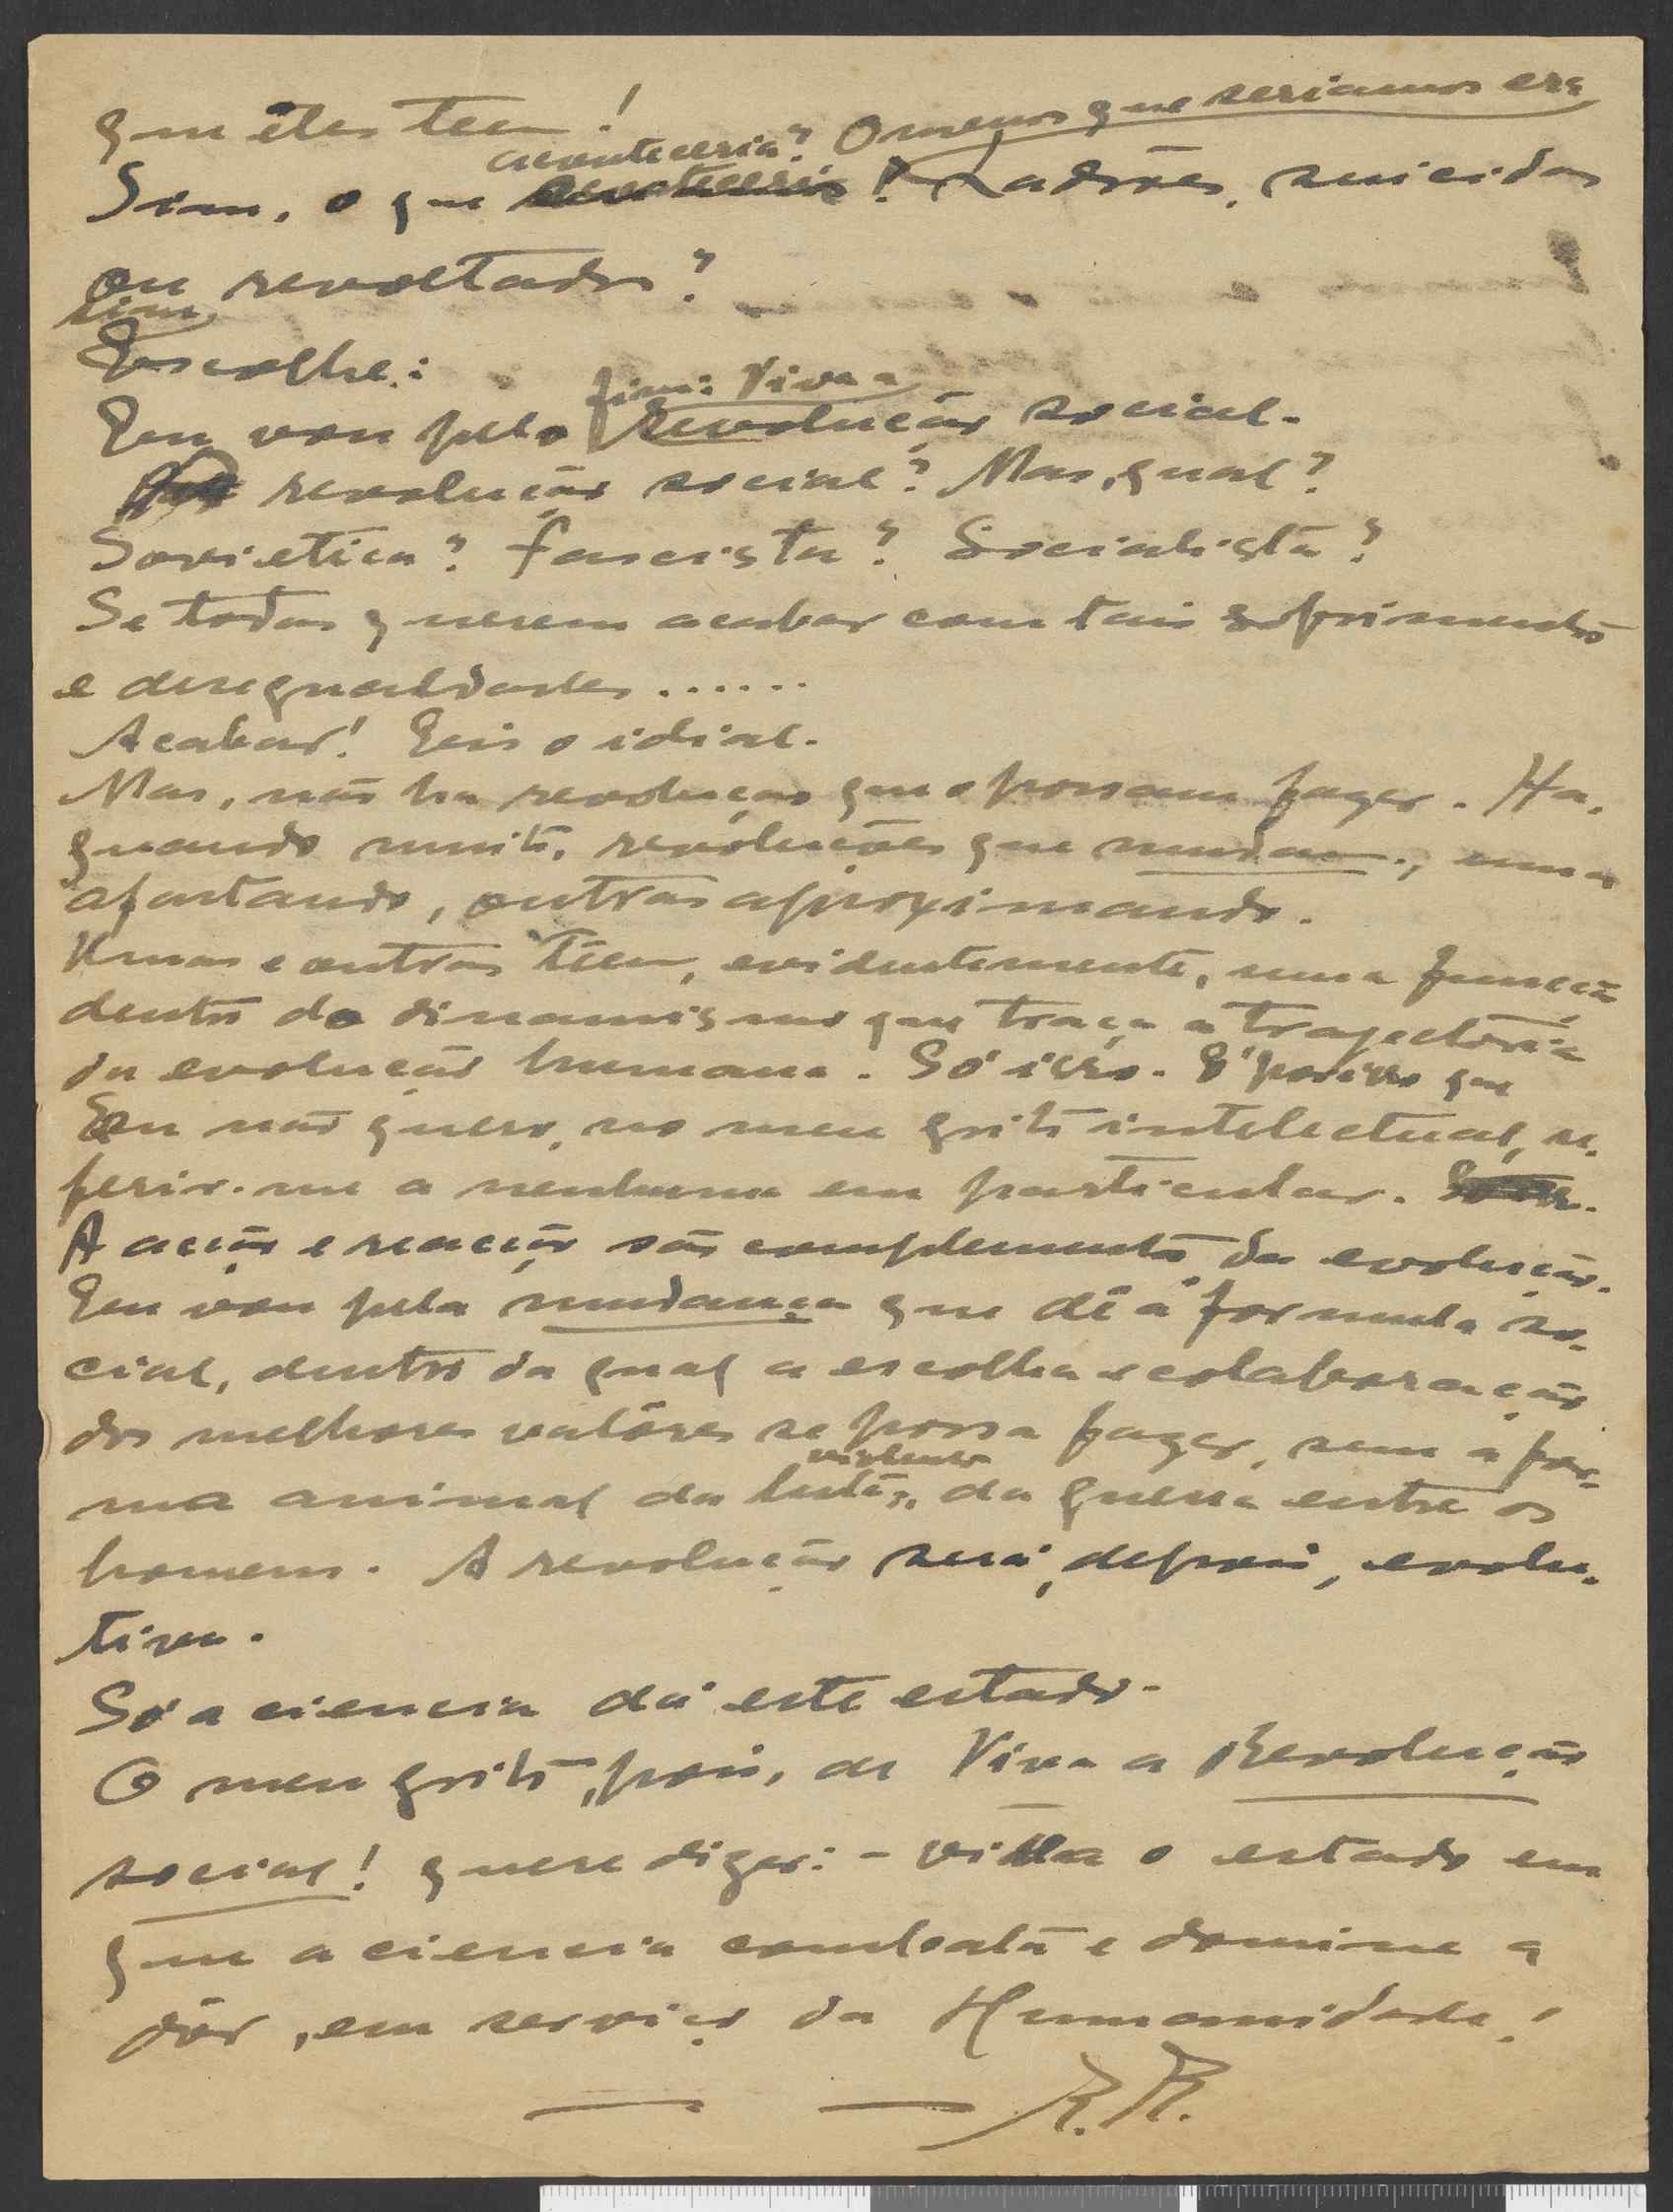 que êles teem!
aconteceria? O menos que seriamos era
Sim, o que aconteceria? Ladrões, suicidas
ou revoltados?
sim
Escolhe:
fim: Viva a
Eu vou pelo Revolução social.
revolução social? Mas, qual?
Sovietica? fascista? Socialista?
Se todas querem acabar com tais sofrimentos
e desegualdades......
Acabar! Eis o idial.
Mas, não ha revoluções que o possam fazer. Ha,
quando muito, revoluções que mudam, umas
afastando, outras aproximando.
Umas e outras têem, evidentemente, uma função
dentro do dinamismo que traça a trajectória
da evolução humana. Só isso. É por isso que
Eu não quero, no meu grito intelectual, re-
ferir-me a nenhuma em particular.
A acção e reacção são complemento da evolução.
Eu vou pela mudança que dê a formula so-
cial, dentro da qual a escolha e colaboração
dos melhores valôres se possa fazer, sem a for-
violenta
ma animal da luta, da guerra entre os
homens. A revolução será, depois, evolu-
tiva.
Só a ciencia dá este estado.
O meu grito, pois, de Viva a Revolução
social! quere dizer: - viva o estado em
que a ciencia combata e domine a
dôr, em serviço da Humanidade!
R.R.